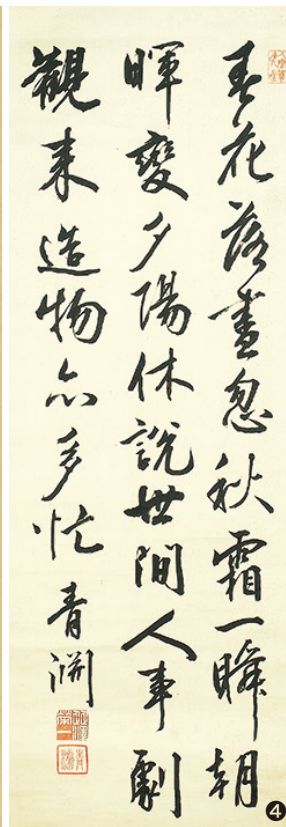 春花落盡忽秋霜一瞬朝
暉變夕陽休說世間人事劇
觀来造物亦多忙 青淵
4